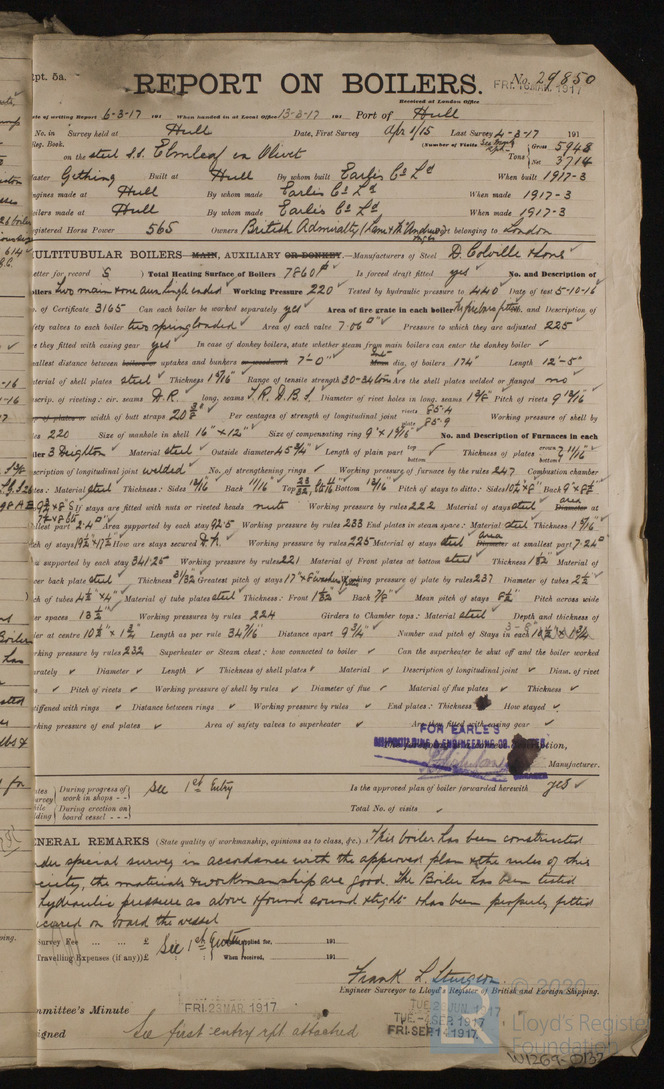 Rpt. 5a.
REPORT ON BOILERS.
No. 29850
FRI. 16 MAR. 1917
Received at London Office
Date of writing Report 6-3-17 191 When handed in at Local Office 13-3-17 191 Port of Hull
No. in Survey held at Hull Date, First Survey Apr 1/15 Last Survey 4-3-17 191
Reg. Book. (Number of Visits
on the steel S.S. Elmleaf ex Olivet Tons Gross 5948 Net 3714
Master Gething Built at Hull By whom built Earles Co Ld When built 1917-3
Engines made at Hull By whom made Earles Co Ld When made 1917-3
Boilers made at Hull By whom made Earles Co Ld When made 1917-3
Registered Horse Power 565 Owners British Admiralty (Lane & McAndrew) Port belonging to London
MULTITUBULAR BOILERS MAIN, AUXILIARY OR DONKEY.—Manufacturers of Steel D. Colville & Sons
Letter for record S ) Total Heating Surface of Boilers 7860 Is forced draft fitted yes No. and Description of
Boilers two main & one aux. single ended Working Pressure 220 Tested by hydraulic pressure to 440 Date of test 5-10-16
No. of Certificate 3165 Can each boiler be worked separately yes Area of fire grate in each boiler No. and Description of
safety valves to each boiler two spring loaded Area of each valve 7.06 Pressure to which they are adjusted 225
Are they fitted with easing gear yes In case of donkey boilers, state whether steam from main boilers can enter the donkey boiler
Smallest distance between boilers or uptakes and bunkers or woodwork 7'-0" Mean dia. of boilers 174" Length 12'-5"
Material of shell plates steel Thickness 1 5/16" Range of tensile strength 30-34 tons Are the shell plates welded or flanged no
Descrip. of riveting: cir. seams D.R. long. seams T.R.D.B.S. Diameter of rivet holes in long. seams 1 3/8" Pitch of rivets 9 13/16"
width of butt straps 20 3/8" Per centages of strength of longitudinal joint rivets 85.4 plate 85.9 Working pressure of shell by
rules 220 Size of manhole in shell 16" x 12" Size of compensating ring 9" x 1 5/16" No. and Description of Furnaces in each
boiler 3 Deighton Material steel Outside diameter 45 3/4" Length of plain part top bottom Thickness of plates crown bottom 11/16"
Description of longitudinal joint welded No. of strengthening rings Working pressure of furnace by the rules 247 Combustion chamber
plates: Material steel Thickness: Sides 13/16 Back 11/16" Top 23/32 Bottom 13/16" Pitch of stays to ditto: Sides 10 1/2" x 8" Back 9" x 8 1/2"
If stays are fitted with nuts or riveted heads nuts Working pressure by rules 222 Material of stays steel area Diameter at
smallest part 2.40" Area supported by each stay 92.5 Working pressure by rules 233 End plates in steam space: Material steel Thickness 1 5/16"
Pitch of stays 19 1/2" x 17 1/2" How are stays secured D.N. Working pressure by rules 225 Material of stays steel area Diameter at smallest part 7.24
Area supported by each stay 341.25 Working pressure by rules 221 Material of Front plates at bottom steel Thickness 1 1/32" Material of
Lower back plate steel Thickness 31/32" Greatest pitch of stays 17" x 8" Working pressure of plate by rules 237 Diameter of tubes 2 1/2"
Pitch of tubes 4 1/2" x 4" Material of tube plates steel Thickness: Front 1 1/32" Back 7/8" Mean pitch of stays 8 1/2" Pitch across wide
water spaces 13 1/2" Working pressures by rules 224 Girders to Chamber tops: Material steel Depth and thickness of
girder at centre 10 1/2" x 1 3/4" Length as per rule 34 7/16" Distance apart 9 3/4" Number and pitch of Stays in each 3-8"
Working pressure by rules 232 Superheater or Steam chest: how connected to boiler Can the superheater be shut off and the boiler worked
separately Diameter Length Thickness of shell plates Material Description of longitudinal joint Diam. of rivet
holes Pitch of rivets Working pressure of shell by rules Diameter of flue Material of flue plates Thickness
If stiffened with rings Distance between rings Working pressure by rules End plates: Thickness How stayed
Working pressure of end plates Area of safety valves to superheater Are they fitted with easing gear
FOR EARLE'S
SHIPBUILDING & ENGINEERING CO. LIMITED
Manufacturer.
Dates of Survey while building During progress of work in shops - - See 1st Entry Is the approved plan of boiler forwarded herewith yes
During erection on board vessel - - - Total No. of visits
GENERAL REMARKS (State quality of workmanship, opinions as to class, &c.) This boiler has been constructed
under special survey in accordance with the approved plan & the rules of this
society, the materials & workmanship are good. The Boiler has been tested
by hydraulic pressure as above & found sound & tight & has been properly fitted
& secured on board the vessel
Survey Fee ... ... £ See 1st Entry When applied for, 191
Travelling Expenses (if any) £ : : When received, 191
Frank L. Sturgeon
Engineer Surveyor to Lloyd's Register of British and Foreign Shipping.
Committee's Minute FRI. 23 MAR. 1917
TUE. 26 JUN. 1917
TUE. -4 SEP. 1917
FRI. SEP. 14 1917
Assigned See first entry rpt attached
© 2020
Lloyd's Register
Foundation
W1269-0137